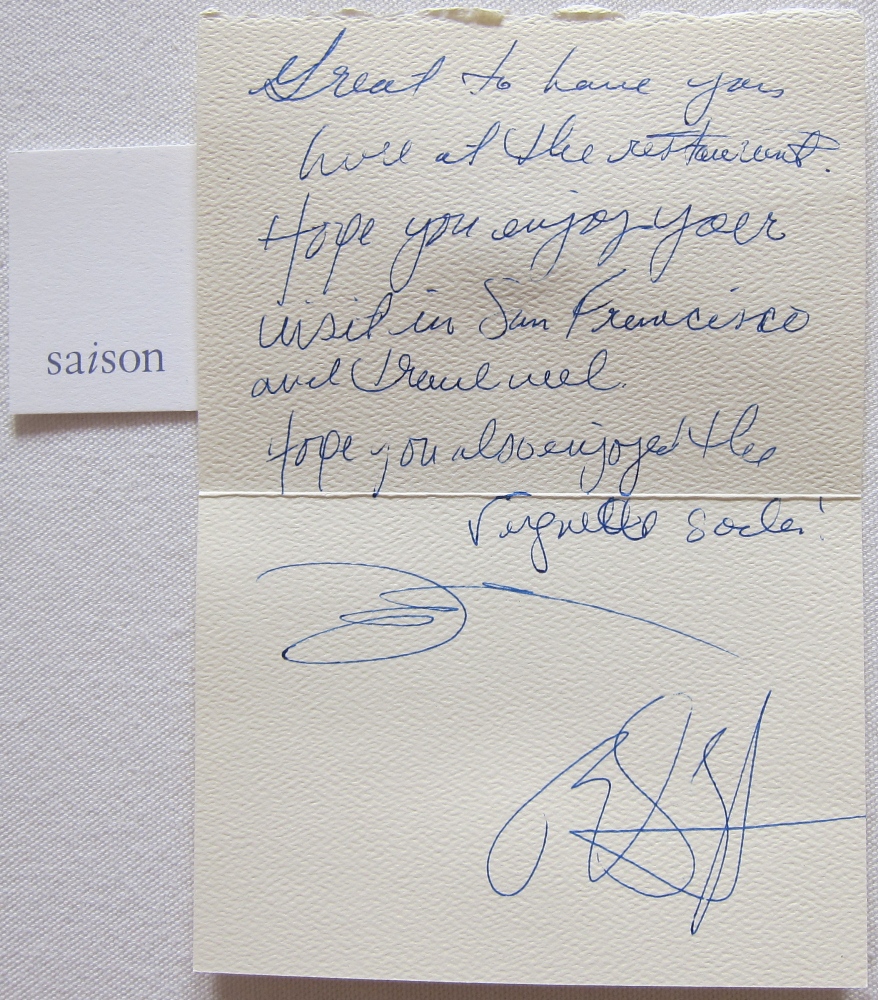 saison
Great to have you
here at the restaurant.
Hope you enjoy your
visit in San Francisco
and travel well.
Hope you also enjoyed the
Vignette soda!